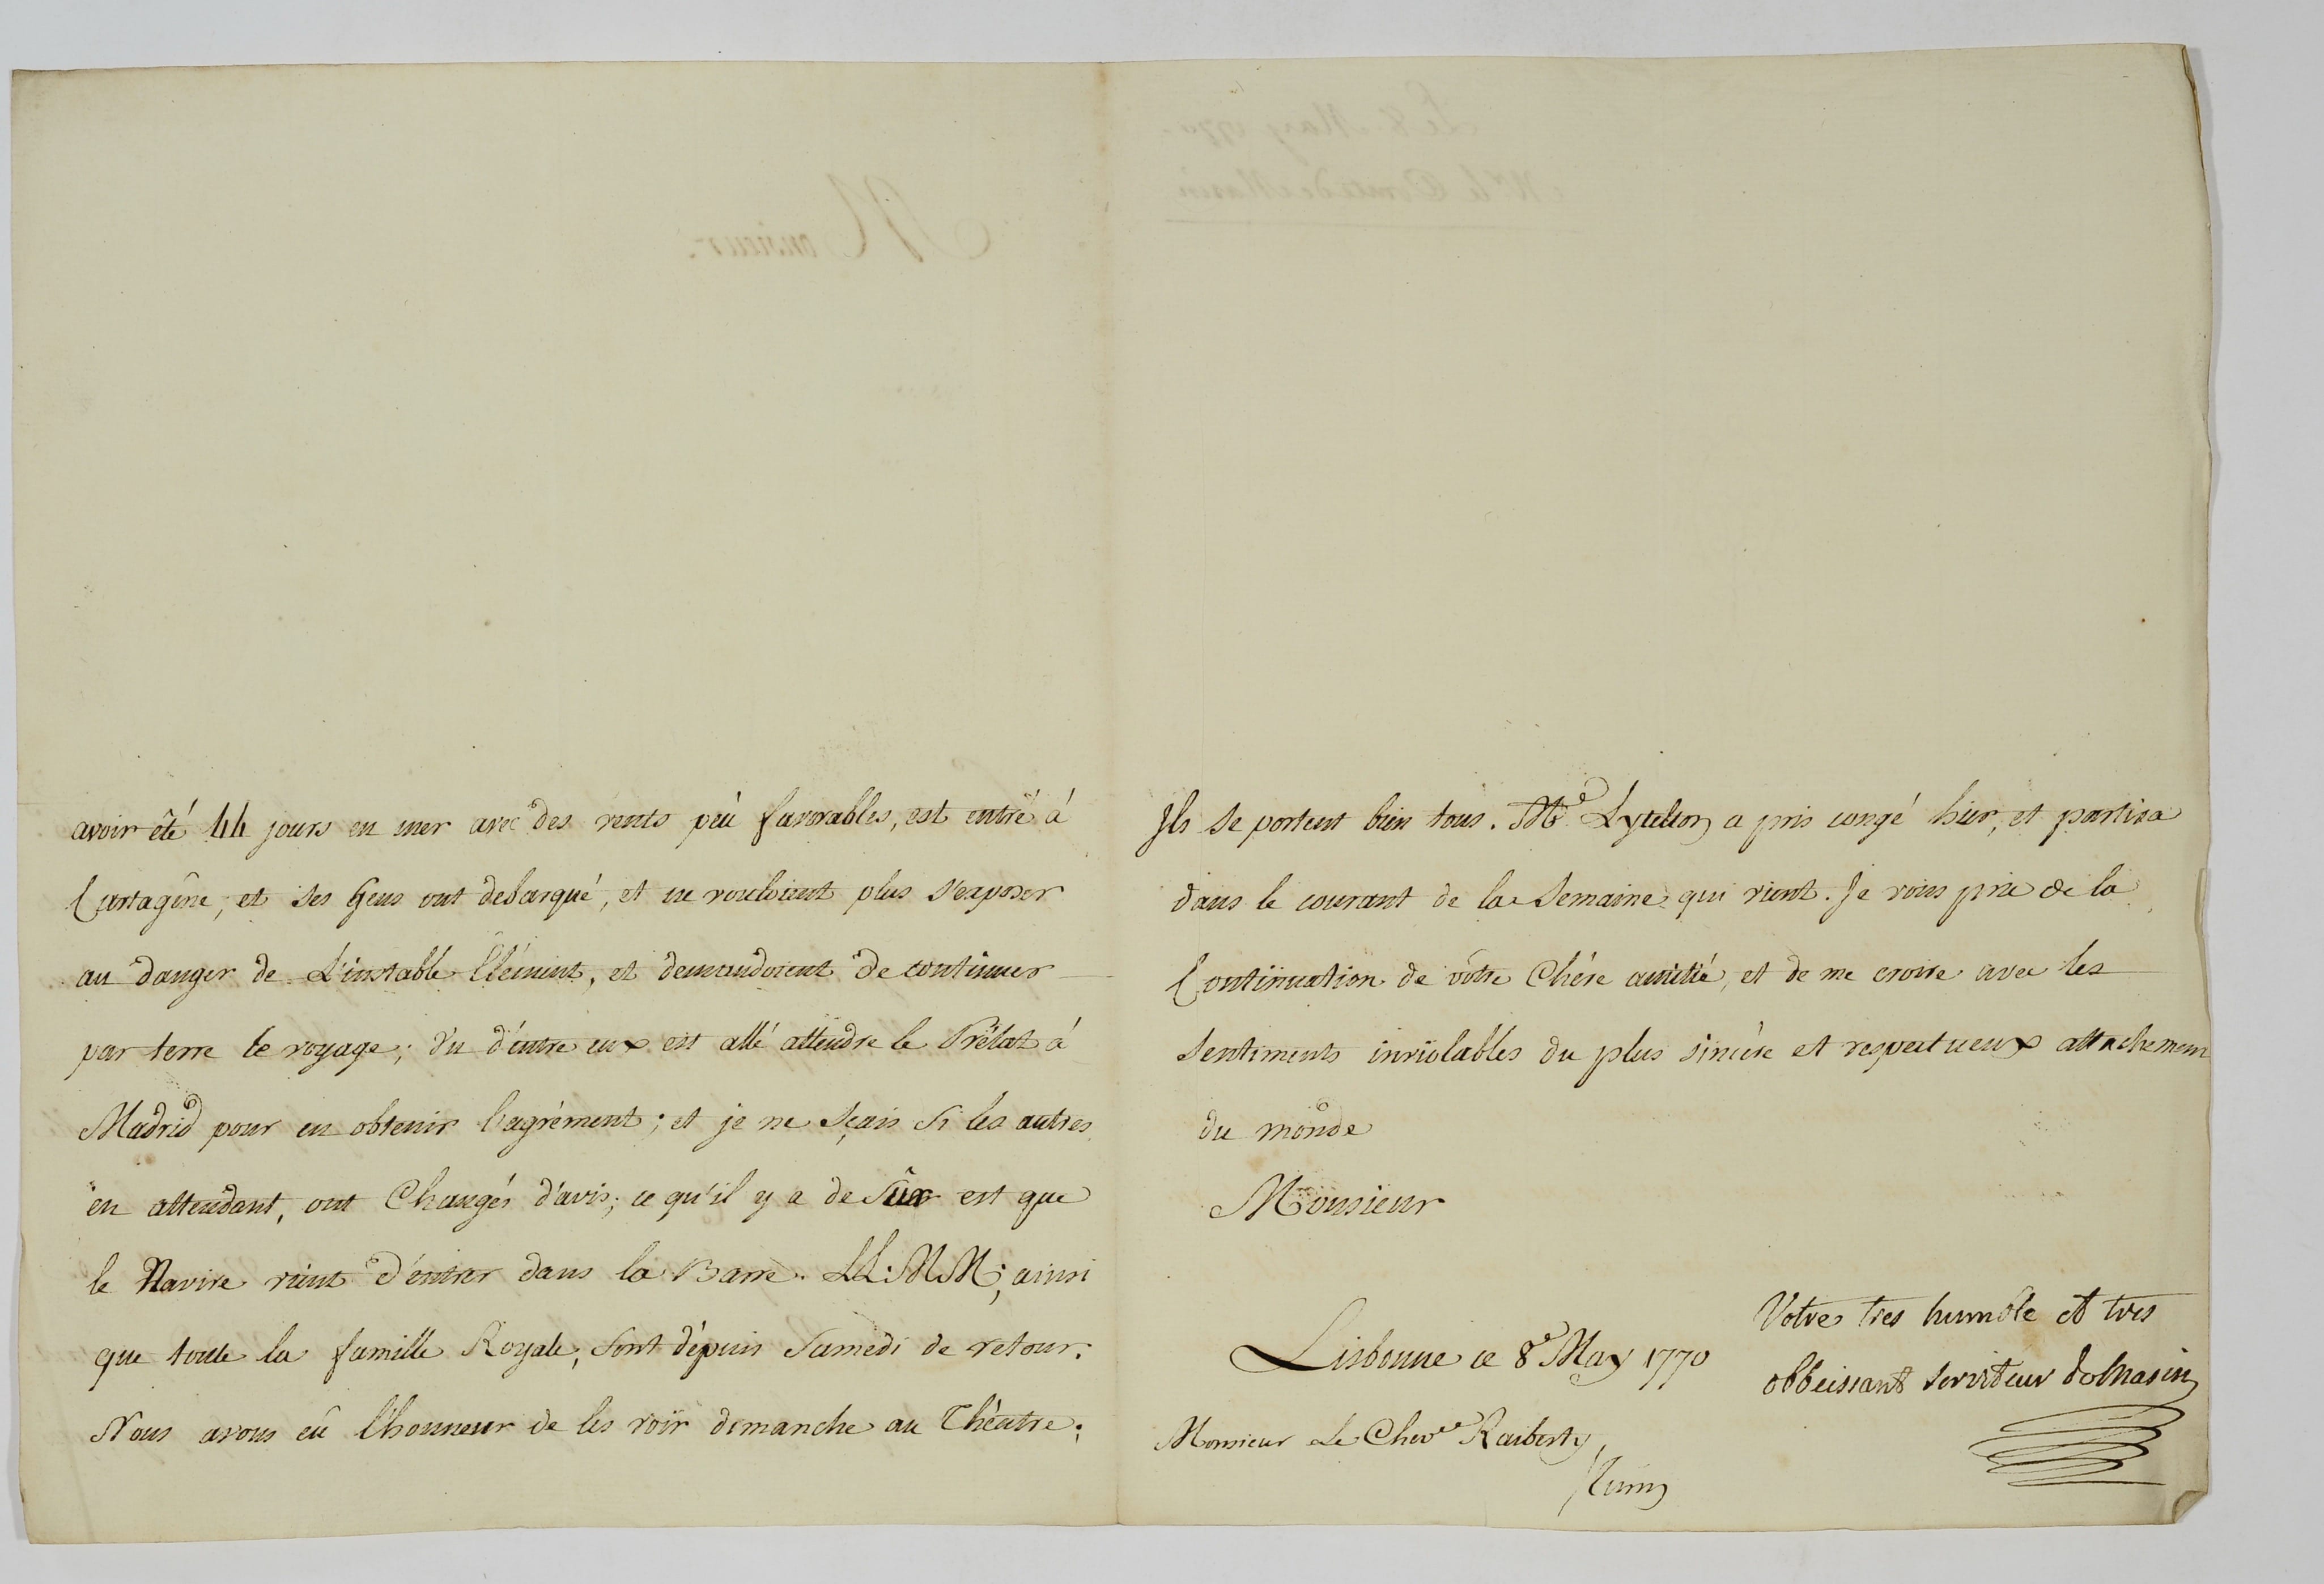 avoir êté 44 jours en mer avec des vents peù favorables, est entré à
Cartagêne, et ses Gens ont debarqué, et ne vouloient plus s'exposer
au danger de L'instable Elément, et demandoient de continuer
par terre le voyage; d'entre eux est allé attendre le Prélat à
Madrid pour en obtenir l'agrément; et je ne sçais si les autres
en attendant, ont Changés d'avis; ce qu'il y a de Sûr est que
le Navire vient d'entrer dans la Barre. LL: MM; ainsi
que toute la famille Royale, sont dépuis Samedi de retour.
Nous avons eû l'honneur de les voir dimanche au Théatre;
Ils se portent bien tous. Mr Lytelton a pris congé hier, et partira
dans le courant de la Semaine qui vient. Je vous prie de la
Continuation de vôtre Chére amitié, et de me croire avec les
sentiments inviolables du plus sincére et respectueux attachement
du monde
Monsieur
Votre tres humble et tres
obbeissant serviteur
Lisbonne ce 8e May 1770
Monsieur Le Chevr Raiberty
Le 8 May 1770
Mr le Comte de Masin
Monsieur.